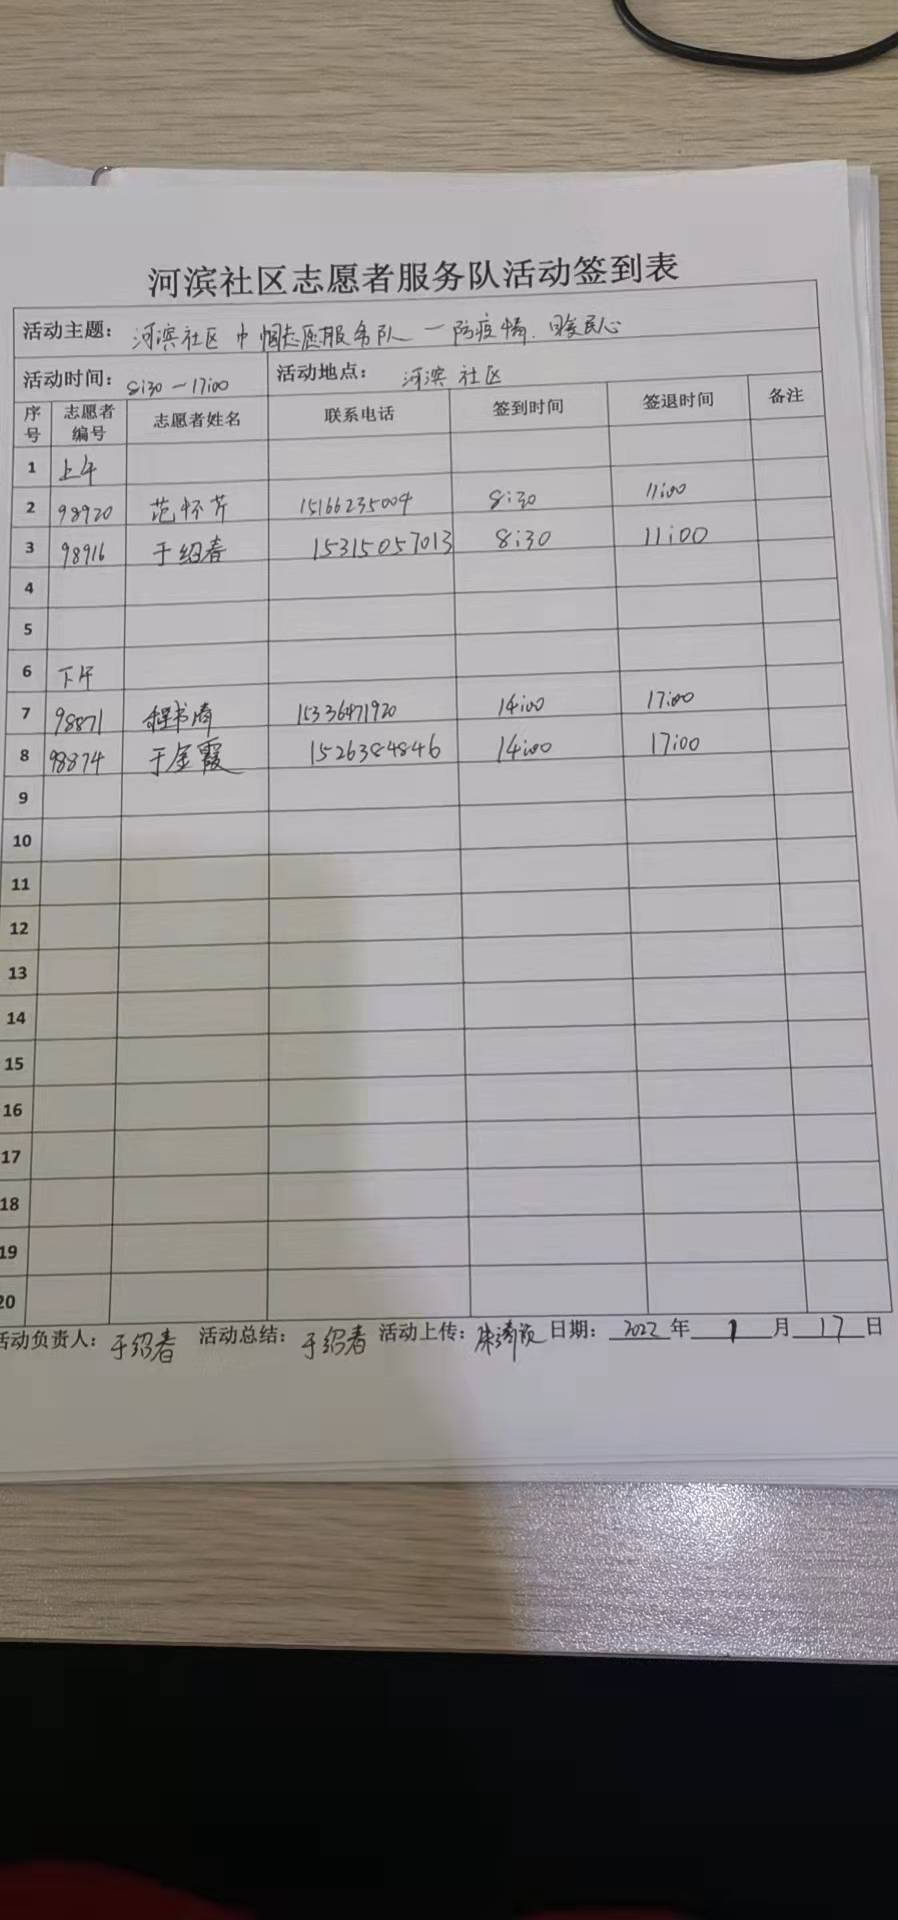 河滨社区志愿者服务队活动签到表
活动主题： 河滨社区巾帼志愿服务队—防疫情.暖民心
活动时间： 8:30—17:00 活动地点： 河滨社区
序号 志愿者编号 志愿者姓名 联系电话 签到时间 签退时间 备注
1 上午
2 98920 范怀芹 15166235004 8:30 11:00
3 98916 于绍春 15315057013 8:30 11:00
4
5
6 下午
7 98871 程书清 15336471920 14:00 17:00
8 98874 于金霞 15263884846 14:00 17:00
9
10
11
12
13
14
15
16
17
18
19
20
活动负责人： 于绍春 活动总结： 于绍春 活动上传： 日期： 2022 年 1 月 17 日